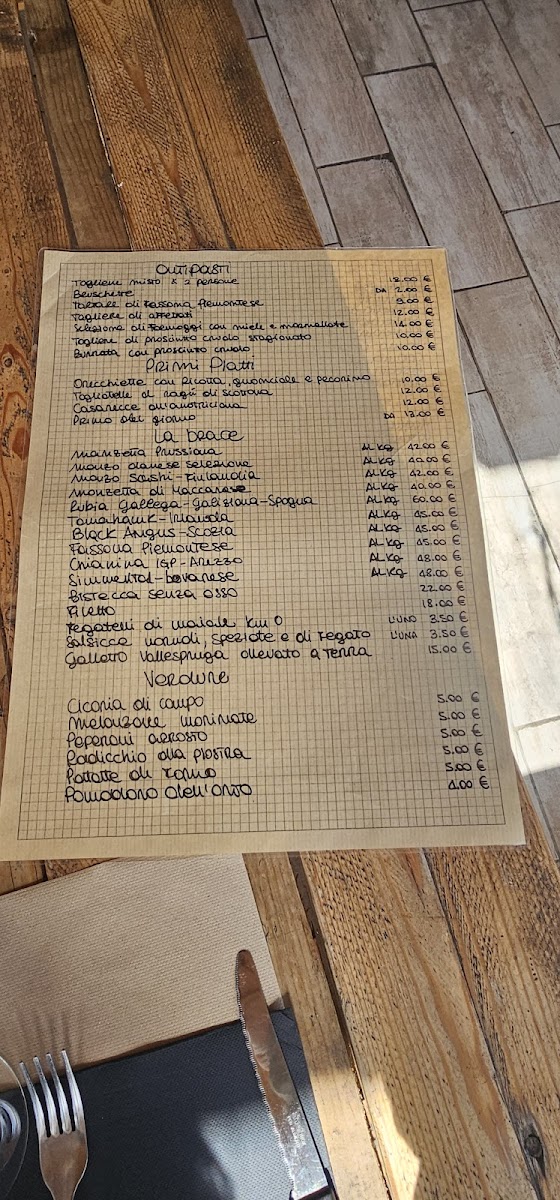 Antipasti
Tagliere misto x 2 persone 18.00 €
Bruschette DA 2.00 €
Tartare di Fassona Piemontese 9.00 €
Tagliere di affettati 12.00 €
Selezione di formaggi con miele e marmellate 14.00 €
Tagliere di prosciutto crudo stagionato 10.00 €
Burrata con prosciutto crudo 10.00 €
Primi Piatti
Orecchiette con ricotta, guanciale e pecorino 10.00 €
Tagliatelle al ragù di scottona 12.00 €
Casarecce all'amatriciana 12.00 €
Primo del giorno DA 13.00 €
La brace
Manzetta Prussiana AL KG 42.00 €
Manzo danese selezione AL KG 40.00 €
Manzo Sashi-Finlandia AL KG 42.00 €
Manzetta di Maccarese AL KG 40.00 €
Rubia Gallega-Galiziana-Spagna AL KG 60.00 €
Tomahawk-Irlanda AL KG 45.00 €
Black Angus-Scozia AL KG 45.00 €
Fassona Piemontese AL KG 45.00 €
Chianina IGP-Arezzo AL KG 48.00 €
Simmental-bavarese AL KG 48.00 €
Bistecca senza osso 22.00 €
Filetto 18.00 €
Fegatelli di maiale km 0 L'UNO 3.50 €
Salsicce normali, speziate e di fegato L'UNA 3.50 €
Galletto Vallespluga allevato a terra 15.00 €
Verdure
Cicoria di campo 5.00 €
Melanzane marinate 5.00 €
Peperoni arrosto 5.00 €
Radicchio alla piastra 5.00 €
Patate al forno 5.00 €
Pomodoro dell'orto 4.00 €